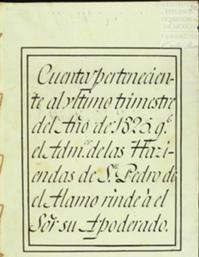 Cuenta pertenecien-
te al vltimo trimestre
del Año de 1825. q.e
el Adm.or de las Hazi-
endas de S.n Pedro de
el Alamo rinde à el
Sõr su Apoderado.